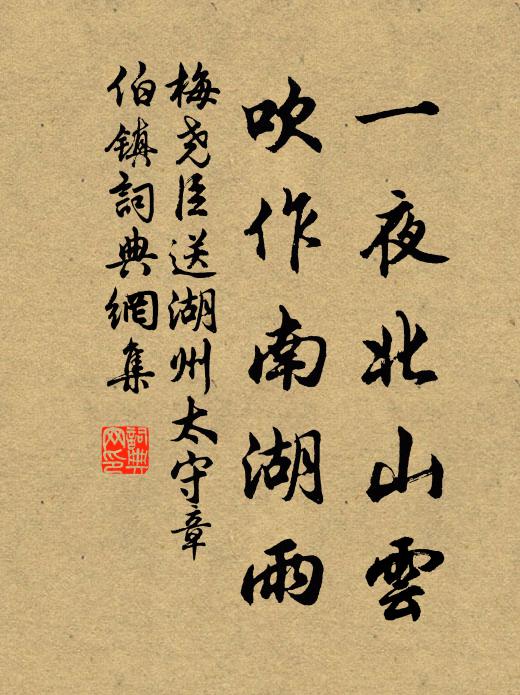 一夜北山雲
吹作南湖雨
梅尧臣送湖州太守章
伯镇詞典網集
詞典
网印